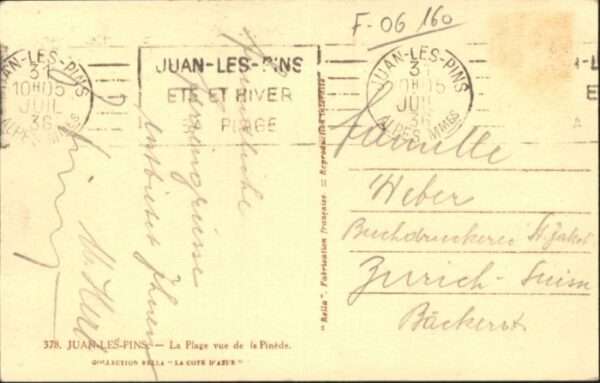 F-06 160
JUAN-LES-PINS
31
10H05
JUIL
36
ALPES MMES
JUAN-LES-PINS
ETE ET HIVER
PLAGE
JUAN-LES-PINS
31
10H05
JUIL
36
ALPES MMES
Familie
Weber
Buchdruckerei St. Jakob
Zürich-Suisse
Bäckerstr.
entbietet Ihnen
"Rella" - Fabrication française - Reproduction interdite
378. JUAN-LES-PINS. - La Plage vue de la Pinède.
COLLECTION RELLA "LA COTE D'AZUR"